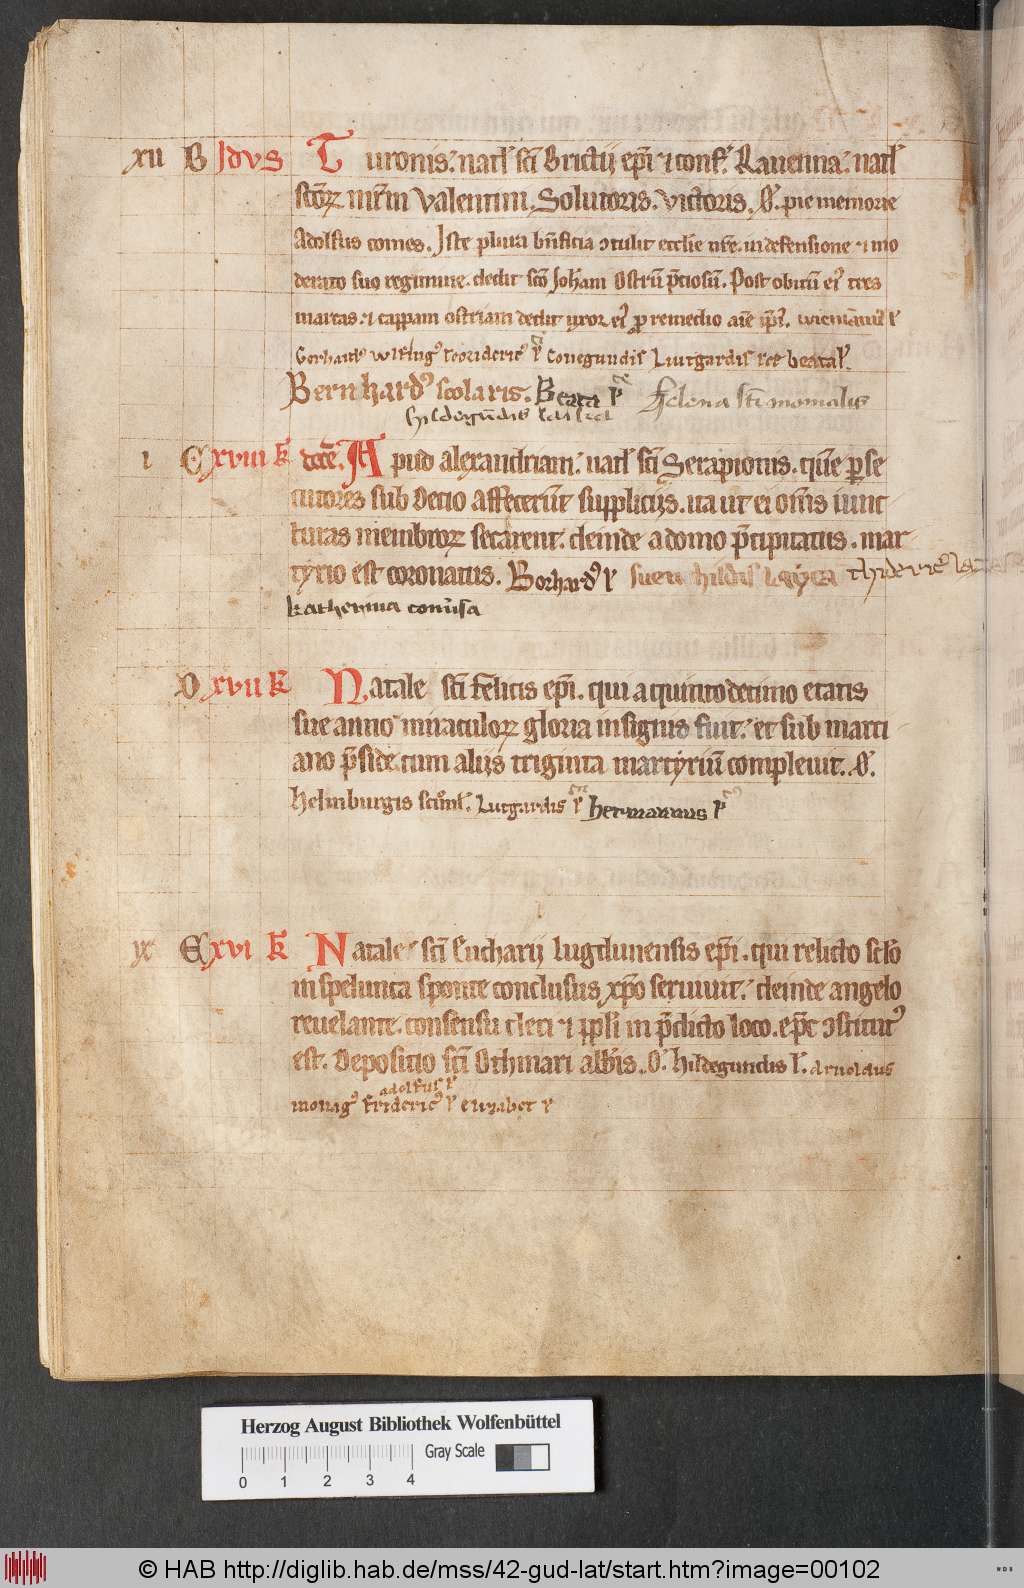 xii B Idus Turonis. natl' sci Brictij epi ⁊ conf'. Rauenna. natl'
scoꝝ mrm Valentini. Solutoris. Victoris. O'. pie memorie
Adolfus comes. Iste plura bnficia ɔtulit ecclie nre. in defensione ⁊ mo
derato suo regimine. dedit sco Joham ostru pciosu. Post obitu ei' tres
marcas. ⁊ cappam ostriam dedit uxor ei' pro remedio aie ipi'.
Gerhard' Conegundis Liutgardis beata l'.
Bernhard' scolaris. Beata l' Helena sci monialis
hildegundis laica
i C xviii k dece. Apud alexandriam. natl' sci Serapionis. que perse
cutores sub Decio affecerut supplicijs. ita ut ei oms iunc
turas membroꝝ secarent. deinde a domo pcipitatus. mar
tyrio est coronatus. Borhard' l' suenehildis layca thideric'
katherina conuersa
D xvii k Natale sci Felicis epi. qui a quintodecimo etatis
sue anno miraculoꝝ gloria insignis fuit. et sub marci
ano pside cum alijs triginta martyriu compleuit. O'.
Helmburgis Lutgardis l' hermannus l'
ix E xvi k Natale sci Eucharij lugdunensis epi. qui relicto sclo
in spelunca sponte conclusus xpo seruiuit. deinde angelo
reuelante. consensu cleri ⁊ ppli in pdicto loco. epc ɔstitut'
est. Depositio sci Othmari abbis. O'. hildegundis l'. Arnoldus
adolfus l'
monag' frideric' l' elizabet l'
Herzog August Bibliothek Wolfenbüttel
0 1 2 3 4 Gray Scale
© HAB http://diglib.hab.de/mss/42-gud-lat/start.htm?image=00102